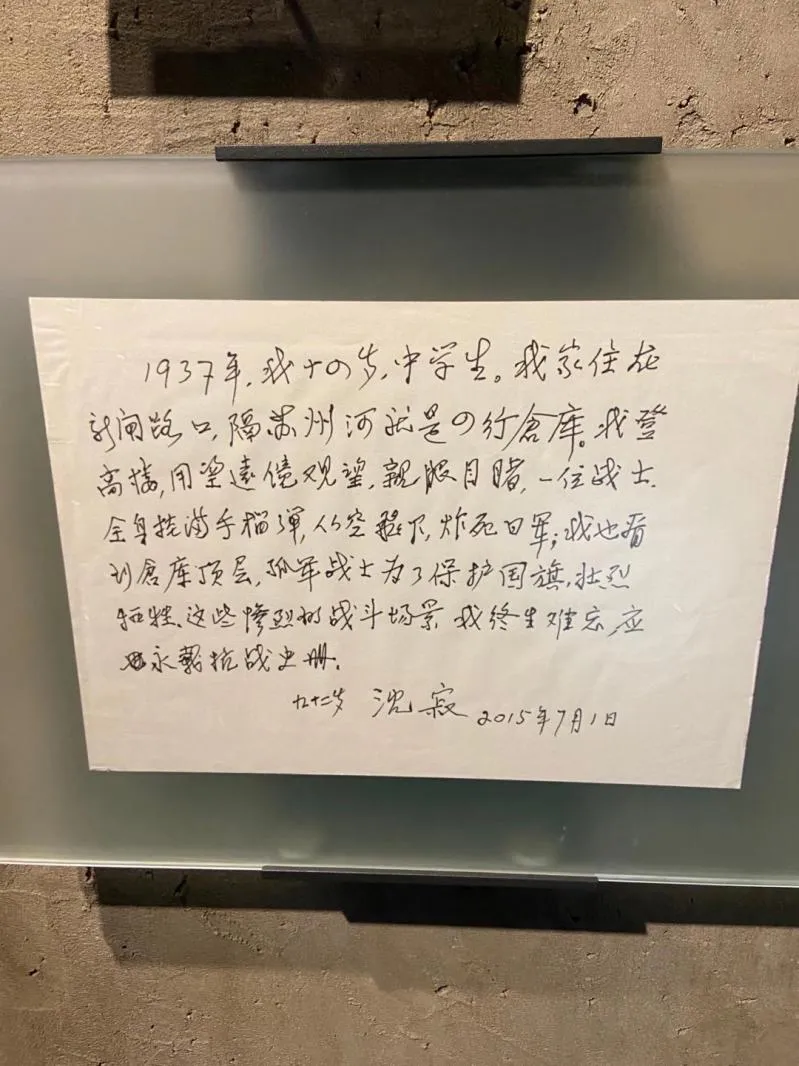 1937年，我十四岁，中学生。我家住在
新闸路口，隔苏州河就是四行仓库。我登
高楼，用望远镜观望，亲眼目睹，一位战士，
全身挠满手榴弹，从空跳下，炸死日军；我也看
到仓库顶层，孤军战士为了保护国旗，壮烈
牺牲。这些惨烈的战斗场景，我终生难忘，应
永载抗战史册。
九十二岁 沈寂 2015年7月1日